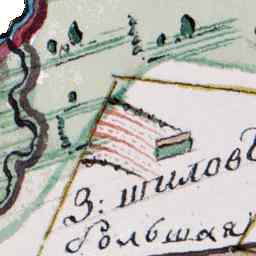 З: шиловъ
Большая